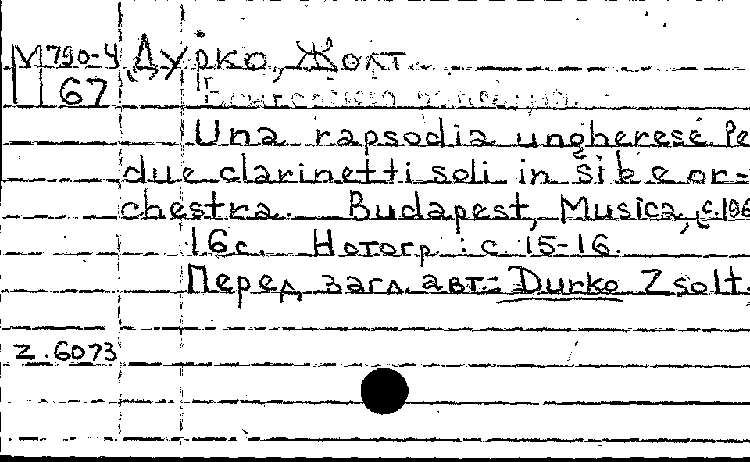 М790-4 Дурко, Жолт.
67
Una rapsodia ungherese Pe
due clarinetti soli in si b e or-
chestra. Budapest, Musica, c.196
16с. Нотогр.: с 15-16.
Перед загл. авт.: Durko Zsolt.
Z.6073